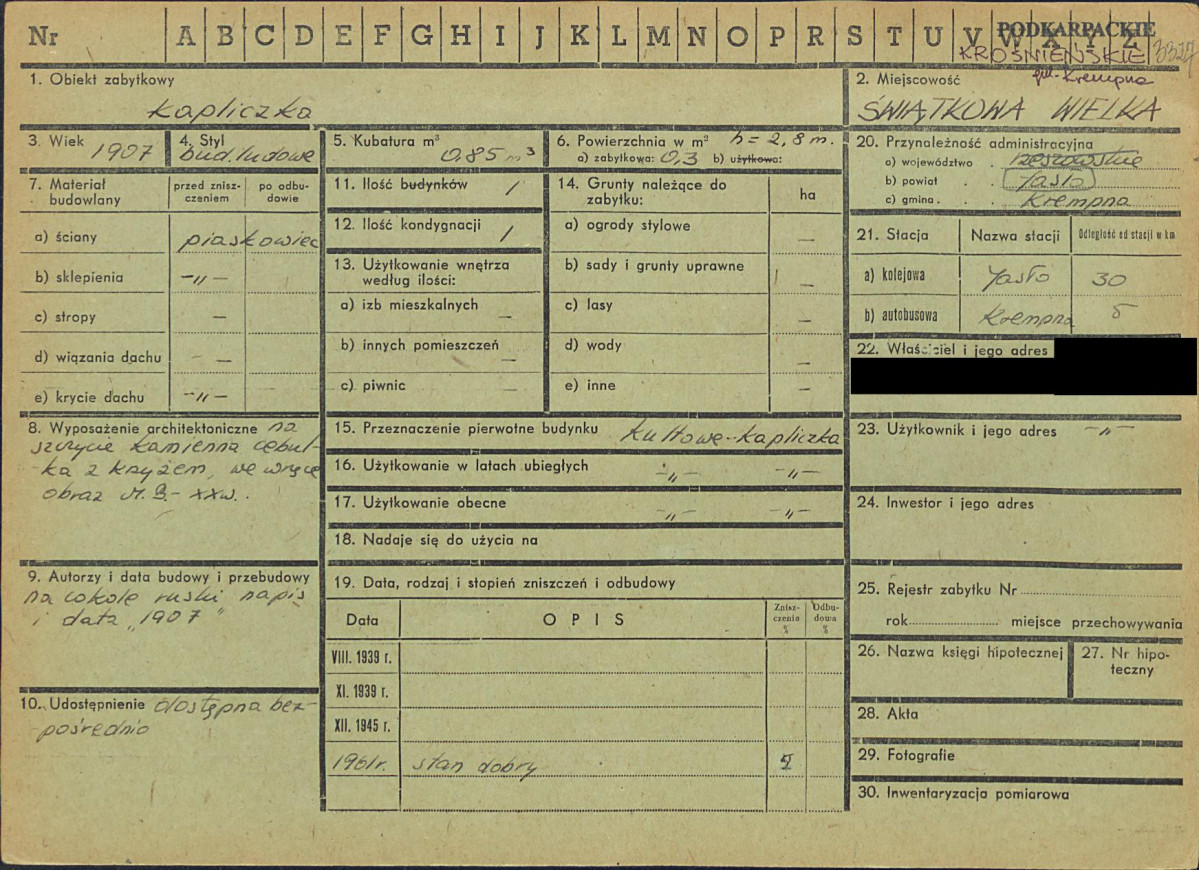 Nr A B C D E F G H I J K L M N O P R S T U V W X Y Z
PODKARPACKIE
KROŚNIEŃSKIE 3327
1. Obiekt zabytkowy
kapliczka
2. Miejscowość gm. Krempna
ŚWIĄTKOWA WIELKA
3. Wiek 1907
4. Styl
bud. ludowe
5. Kubatura m³
0,85 m³
6. Powierzchnia w m² h = 2,8 m.
a) zabytkowa: 0,3 b) użytkowa:
7. Materiał budowlany
przed zniszczeniem
po odbudowie
a) ściany piaskowiec
b) sklepienia -„-
c) stropy —
d) wiązania dachu —
e) krycie dachu -„-
8. Wyposażenie architektoniczne na
szczycie kamienna cebul-
-ka z krzyżem, we wnęce
obraz M.B. - XXw.
9. Autorzy i data budowy i przebudowy
na cokole ruski napis
i data „1907"
10. Udostępnienie dostępna bez-
pośrednio
11. Ilość budynków 1
12. Ilość kondygnacji 1
13. Użytkowanie wnętrza
według ilości:
a) izb mieszkalnych —
b) innych pomieszczeń —
c) piwnic —
14. Grunty należące do
zabytku:
ha
a) ogrody stylowe —
b) sady i grunty uprawne —
c) lasy —
d) wody —
e) inne —
15. Przeznaczenie pierwotne budynku kultowe - kapliczka
16. Użytkowanie w latach ubiegłych -„- -„-
17. Użytkowanie obecne -„- -„-
18. Nadaje się do użycia na
19. Data, rodzaj i stopień zniszczeń i odbudowy
Data OPIS Zniszczenia % Odbudowa %
VIII. 1939 r.
XI. 1939 r.
XII. 1945 r.
1961r. stan dobry 5
20. Przynależność administracyjna
a) województwo . rzeszowskie
b) powiat . . Jasło
c) gmina . . . Krempna
21. Stacja Nazwa stacji Odległość od stacji w km
a) kolejowa Jasło 30
b) autobusowa Krempna 5
22. Właściciel i jego adres
23. Użytkownik i jego adres -„-
24. Inwestor i jego adres
25. Rejestr zabytku Nr
rok miejsce przechowywania
26. Nazwa księgi hipotecznej
27. Nr hipo-
teczny
28. Akta
29. Fotografie
30. Inwentaryzacja pomiarowa